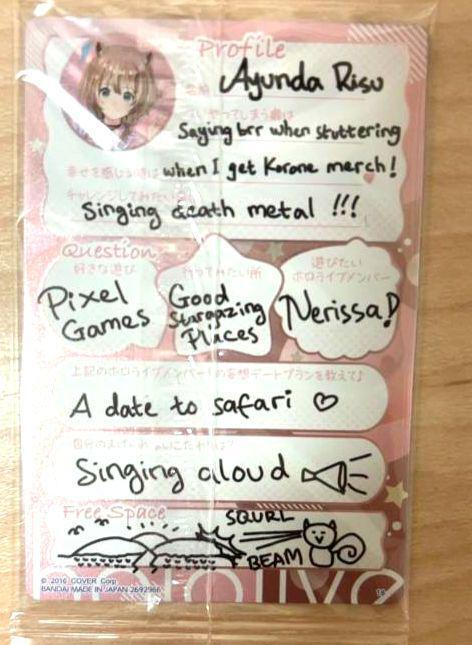 Profile
Ayunda Risu
Saying brr when stuttering
幸せを感じる時は when I get Korone merch!
チャレンジしてみたい
Singing death metal !!!
Question
好きな遊び
Pixel
Games
行ってみたい所
Good
Stargazing
Places
遊びたい
ホロライブメンバー
Nerissa!
上記のホロライブメンバーとの妄想デートプランを教えて♪
A date to safari ♡
Singing aloud
Free Space
SQURL
BEAM
© 2016 COVER Corp.
BANDAI MADE IN JAPAN 2692966
hololive